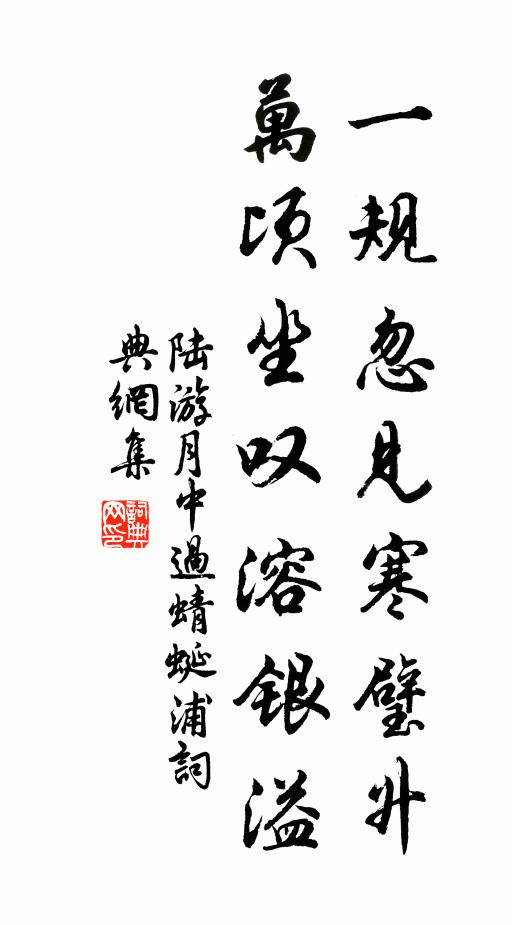 一规忽见寒璧升
萬顷坐叹溶银溢
陆游月中過蜻蜒浦詞
典網集
詞典
网印